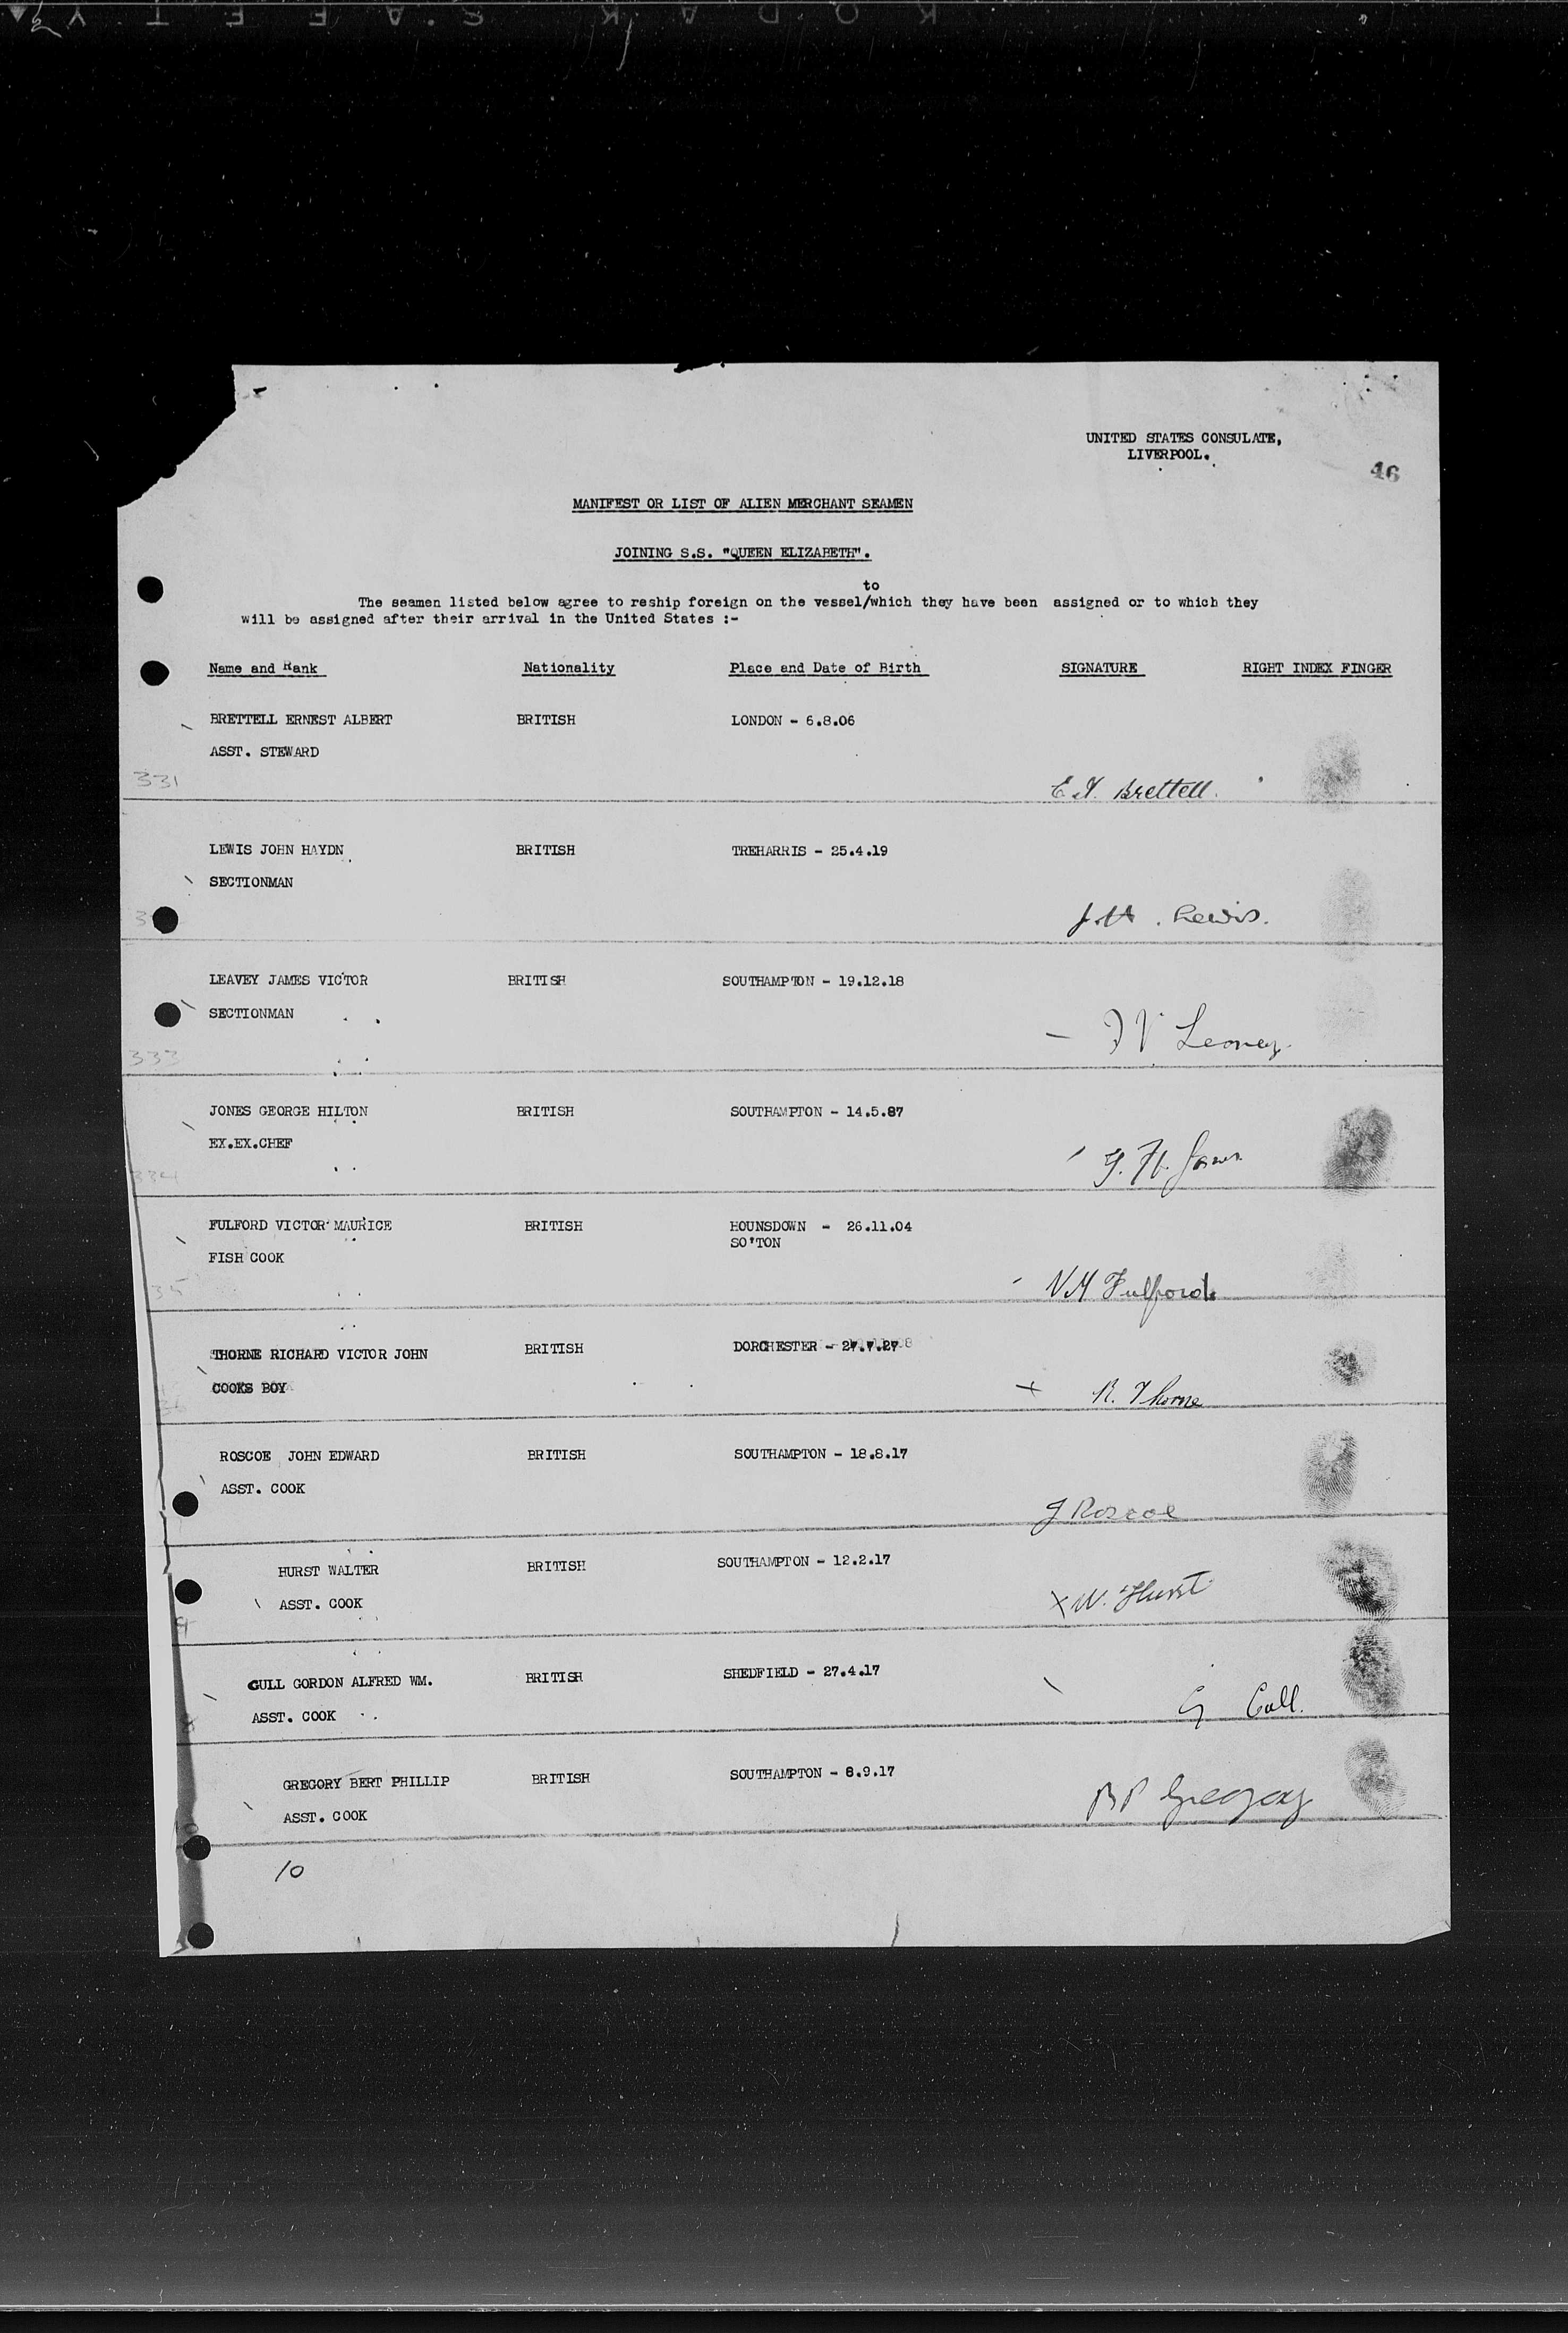 UNITED STATES CONSULATE,
LIVERPOOL.
46
MANIFEST OR LIST OF ALIEN MERCHANT SEAMEN
JOINING S.S. "QUEEN ELIZABETH".
to
The seamen listed below agree to reship foreign on the vessel/which they have been assigned or to which they
will be assigned after their arrival in the United States :-
Name and Rank Nationality Place and Date of Birth SIGNATURE RIGHT INDEX FINGER
BRETTELL ERNEST ALBERT BRITISH LONDON - 6.8.06
ASST. STEWARD
331 E A. Brettell.
LEWIS JOHN HAYDN BRITISH TREHARRIS - 25.4.19
SECTIONMAN
J.H. Lewis.
LEAVEY JAMES VICTOR BRITISH SOUTHAMPTON - 19.12.18
SECTIONMAN
J V Leavey
333
JONES GEORGE HILTON BRITISH SOUTHAMPTON - 14.5.87
EX.EX.CHEF
334 G. H. Jones
FULFORD VICTOR MAURICE BRITISH HOUNSDOWN - 26.11.04
SO'TON
FISH COOK
35 V M Fulford
THORNE RICHARD VICTOR JOHN BRITISH DORCHESTER - 27.7.27
COOKS BOY
R. Thorne
ROSCOE JOHN EDWARD BRITISH SOUTHAMPTON - 18.8.17
ASST. COOK
J Roscoe
HURST WALTER BRITISH SOUTHAMPTON - 12.2.17
ASST. COOK
W. Hurst
CULL GORDON ALFRED WM. BRITISH SHEDFIELD - 27.4.17
ASST. COOK
G Cull.
GREGORY BERT PHILLIP BRITISH SOUTHAMPTON - 8.9.17
ASST. COOK
B P Gregory
10